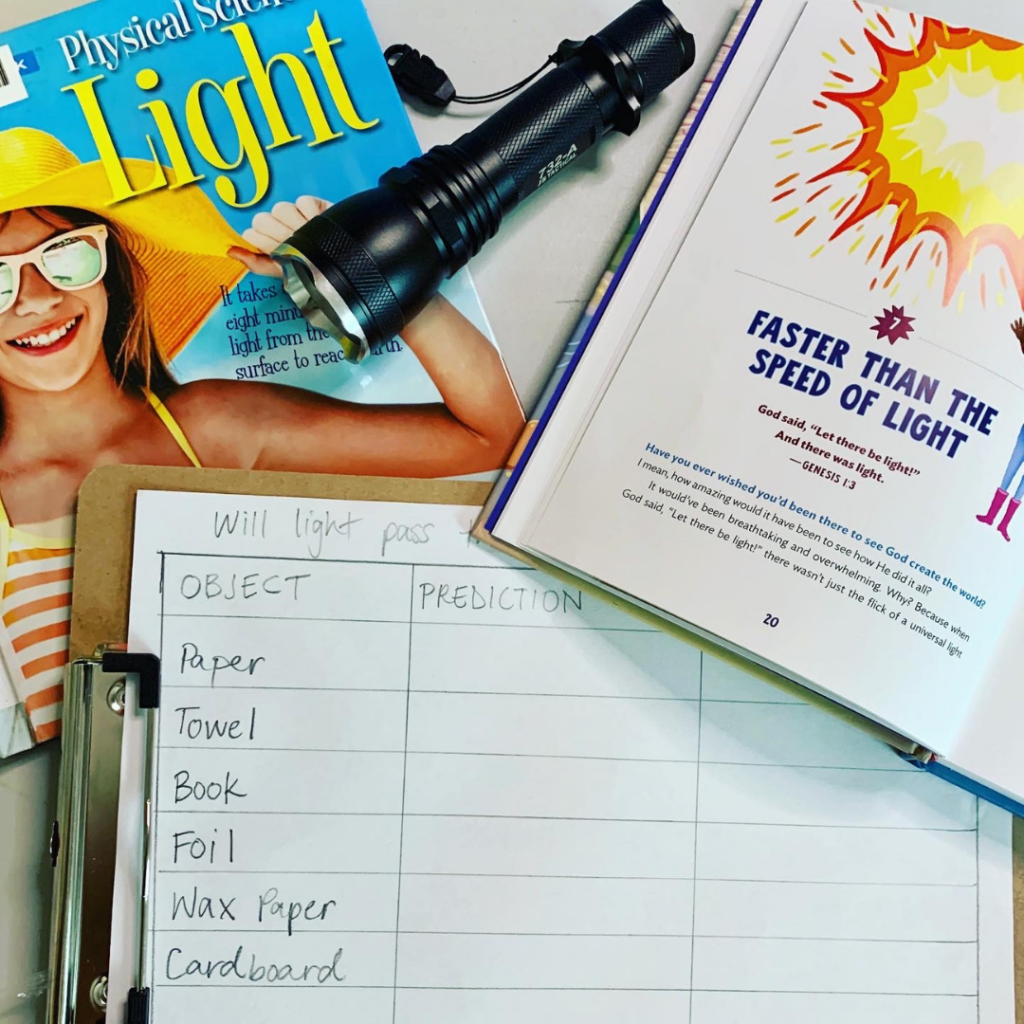 Physical Scien
Light
It takes
eight minu
light from the
surface to reac rth.
732-A
7
FASTER THAN THE
SPEED OF LIGHT
God said, “Let there be light!”
And there was light.
—GENESIS 1:3
Have you ever wished you’d been there to see God create the world?
I mean, how amazing would it have been to see how He did it all?
It would’ve been breathtaking and overwhelming. Why? Because when
God said, “Let there be light!” there wasn’t just the flick of a universal light
20
Will light pass
OBJECT PREDICTION
Paper
Towel
Book
Foil
Wax Paper
Cardboard